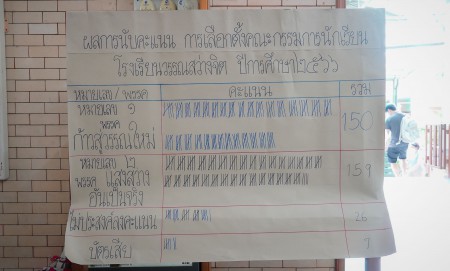 ผลการนับคะแนน การเลือกตั้งคณะกรรมการนักเรียน
โรงเรียนวรรณสว่างจิต ปีการศึกษา ๒๕๖๖
หมายเลข / พรรค คะแนน รวม
หมายเลข ๑ 150
พรรค
ก้าวสู่วรรณใหม่
หมายเลข ๒ 159
พรรค แสงสว่าง
อันเป็นจริง
ไม่ประสงค์ลงคะแนน 26
บัตรเสีย